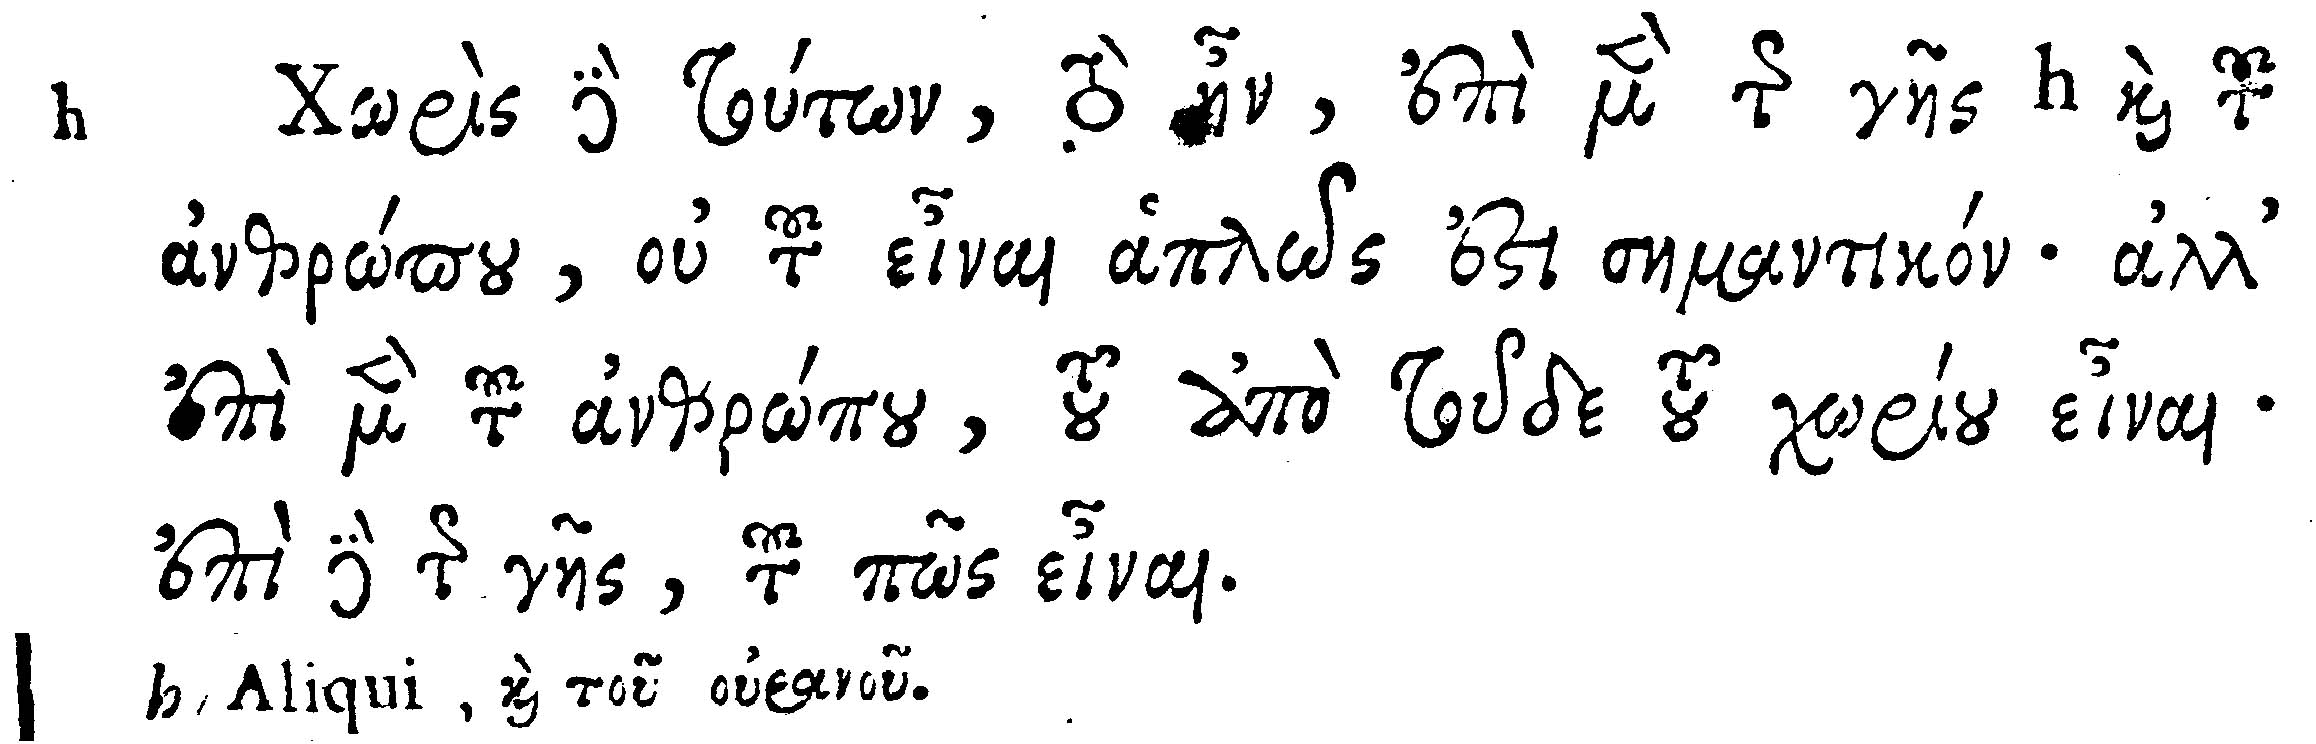 h Χωρὶς δὲ τούτων, τὸ ἦν, ἐπὶ μὲν τῆς γῆς h καὶ τοῦ
ἀνθρώπου, οὐ τοῦ εἶναι ἁπλῶς ἐστι σημαντικόν· ἀλλ’
ἐπὶ μὲν τοῦ ἀνθρώπου, τοῦ ἀπὸ τοῦδε τοῦ χωρίου εἶναι·
ἐπὶ δὲ τῆς γῆς, τοῦ πῶς εἶναι.
h, Aliqui, καὶ τοῦ οὐρανοῦ.